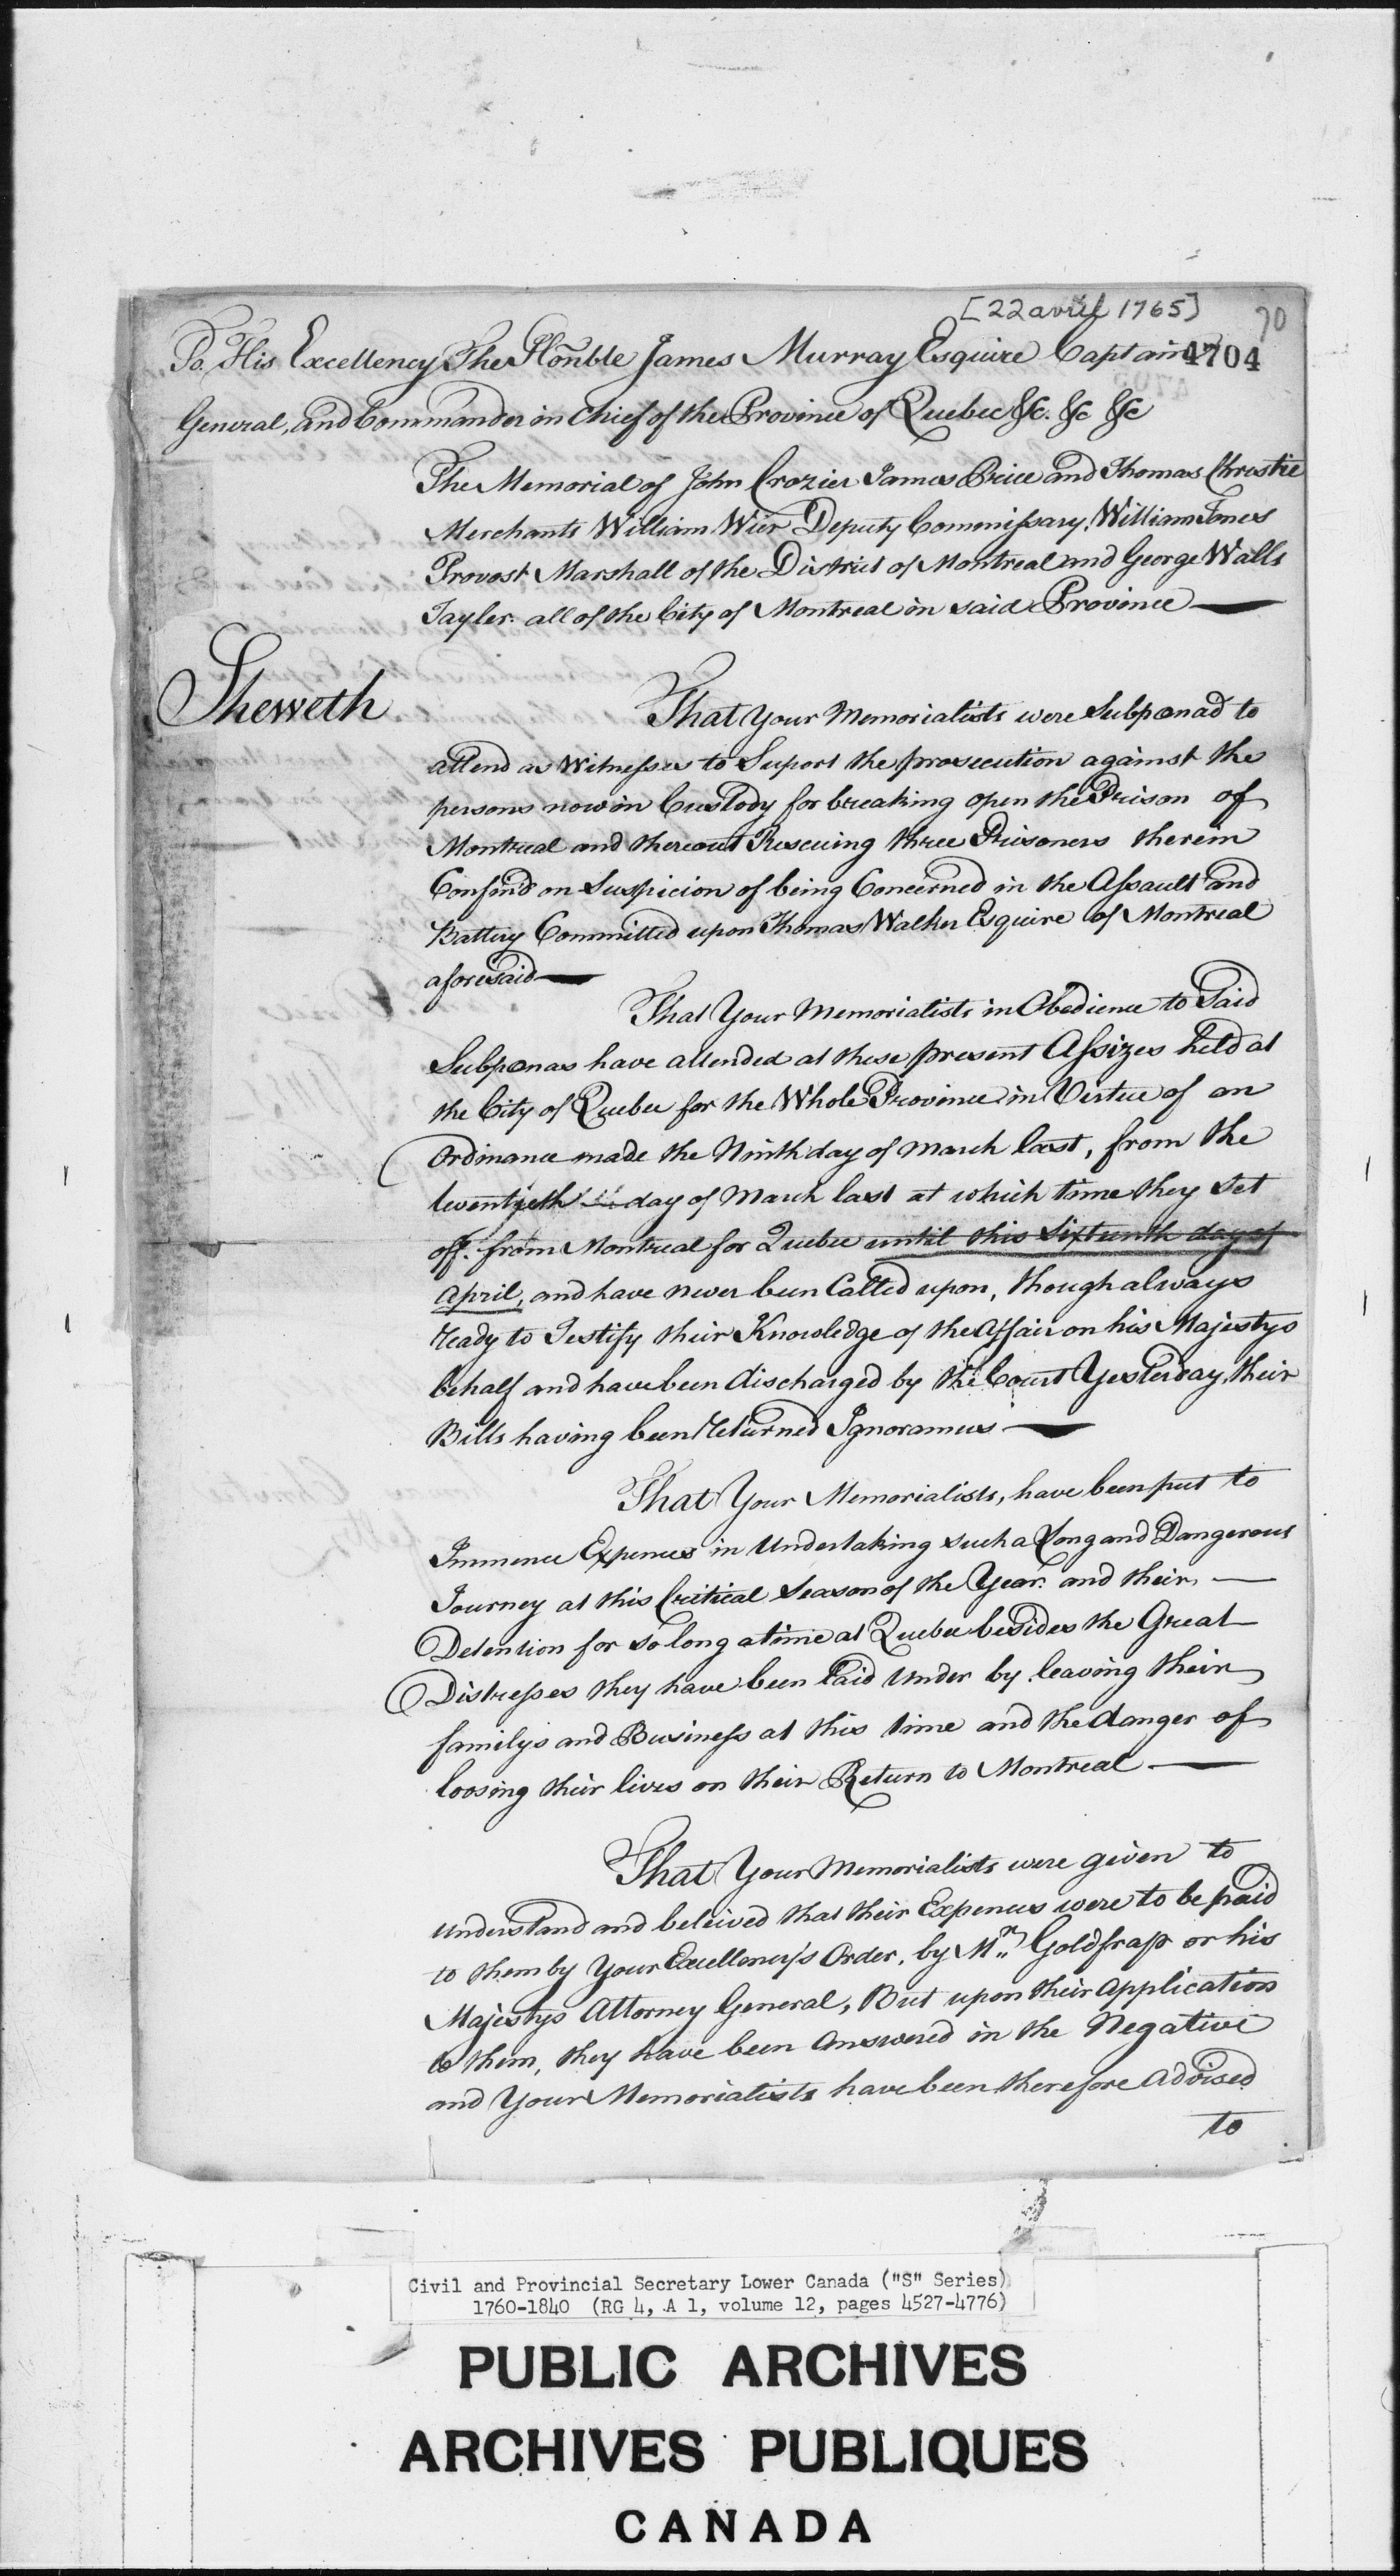 [22 avril 1765]
70
To His Excellency The Honble James Murray Esquire Captain
4704
General, and Commander in Chief of the Province of Quebec &c. &c &c
The Memorial of John Crozier James Price and Thomas Christie
Merchants William Wier Deputy Commissary, William Jones
Provost Marshall of the District of Montreal and George Walls
Tayler. all of the City of Montreal in said Province
Sheweth
That your Memorialists were Subpœnad to
attend as Witnesses to Suport the prosecution against the
persons now in Custody for breaking open the Prison of
Montreal and thereout Rescuing three Prisoners therein
Confin'd on Suspicion of being Concerned in the Assault and
Battery Committed upon Thomas Walker Esquire of Montreal
aforesaid
That Your Memorialists in Obedience to Said
Subpœnas have attended at these present Assizes held at
the City of Quebec for the Whole Province in Virtue of an
Ordinance made the Ninth day of March last, from the
twentyeth day of March last at which time they set
off from Montreal for Quebec until this Sixteenth day of
April, and have never been Called upon, though always
ready to Testify their Knowledge of the Affair on his Majestys
behalf and have been discharged by the Court Yesterday, their
Bills having been returned Ignoramus
That Your Memorialists, have been put to
Immence Expences in Undertaking such a Long and Dangerous
Journey at this Critical Season of the Year. and their
Detention for so long a time at Quebec besides the Great
Distresses they have been Laid under by leaving their
familys and Business at this time and the danger of
loosing their lives on their Return to Montreal
That Your Memorialists were given to
understand and beleived that their Expences were to be paid
to them by Your Excellency's Order, by Mr. Goldfrap or his
Majestys Attorney General, But upon their application
to them, they have been answered in the Negative
and Your Memorialists have been therefore advised
to
Civil and Provincial Secretary Lower Canada ("S" Series)
1760-1840 (RG 4, A 1, volume 12, pages 4527-4776)
PUBLIC ARCHIVES
ARCHIVES PUBLIQUES
CANADA